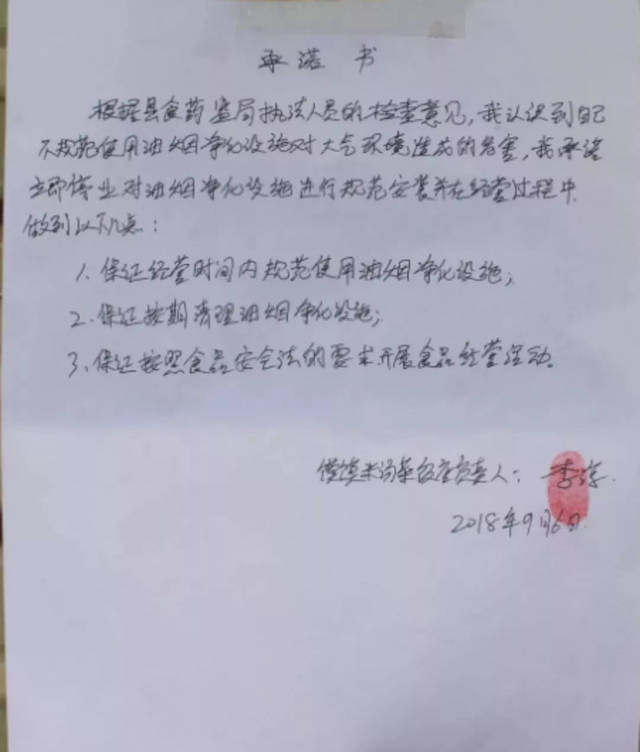 承诺书
根据县食药监局执法人员的检查意见，我认识到自己
不规范使用油烟净化设施对大气环境造成的危害，我承诺
立即停业对油烟净化设施进行规范安装并在经营过程中
做到以下几点：
1、保证经营时间内规范使用油烟净化设施；
2、保证按期清理油烟净化设施；
3、保证按照食品安全法的要求开展食品经营活动。
负责人：李
2018年9月6日